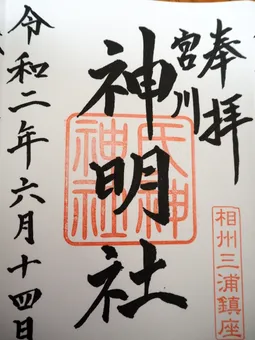 奉拝
宮川
神明社
令和二年六月十四日
氏神
神社
相州三浦鎮座